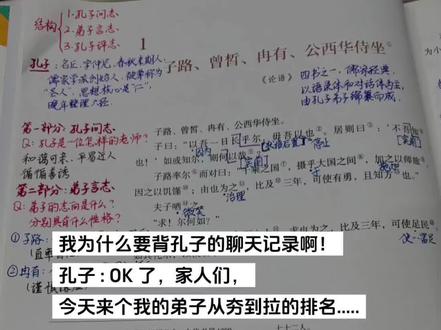 结构
1.孔子问志
2.弟子言志
3.孔子评志
1
子路、曾皙、冉有、公西华侍坐
《论语》
孔子:名丘,字仲尼,春秋末期人,
儒家学派创始人,被尊称为
"圣人",思想核心是"仁",
晚年整理六经
四书之一,儒家经典,
以语录体和对话体为主,
由孔子弟子编纂而成。
第一部分:孔子问志
Q:孔子是一位怎样的老师?
和蔼可亲,平易近人
循循善诱
第二部分:弟子言志
Q:弟子的志向是什么?
分别具有什么性格?
①子路:
②冉有:
子路、曾皙、冉有、公西华侍坐。
子曰:"以吾一日长乎尔,毋吾以也。居则曰:'不吾知
也!'如或知尔,则何以哉?"
子路率尔而对曰:
摄乎大国之间,
因之以饥馑;由也为之,比及三年,可使有勇,且知方也。"
夫子哂之。
微笑
治理
"求!尔何如?"
求也为之,比及三年,可使足民。
我为什么要背孔子的聊天记录啊!
孔子:OK了,家人们,
今天来个我的弟子从夯到拉的排名.....